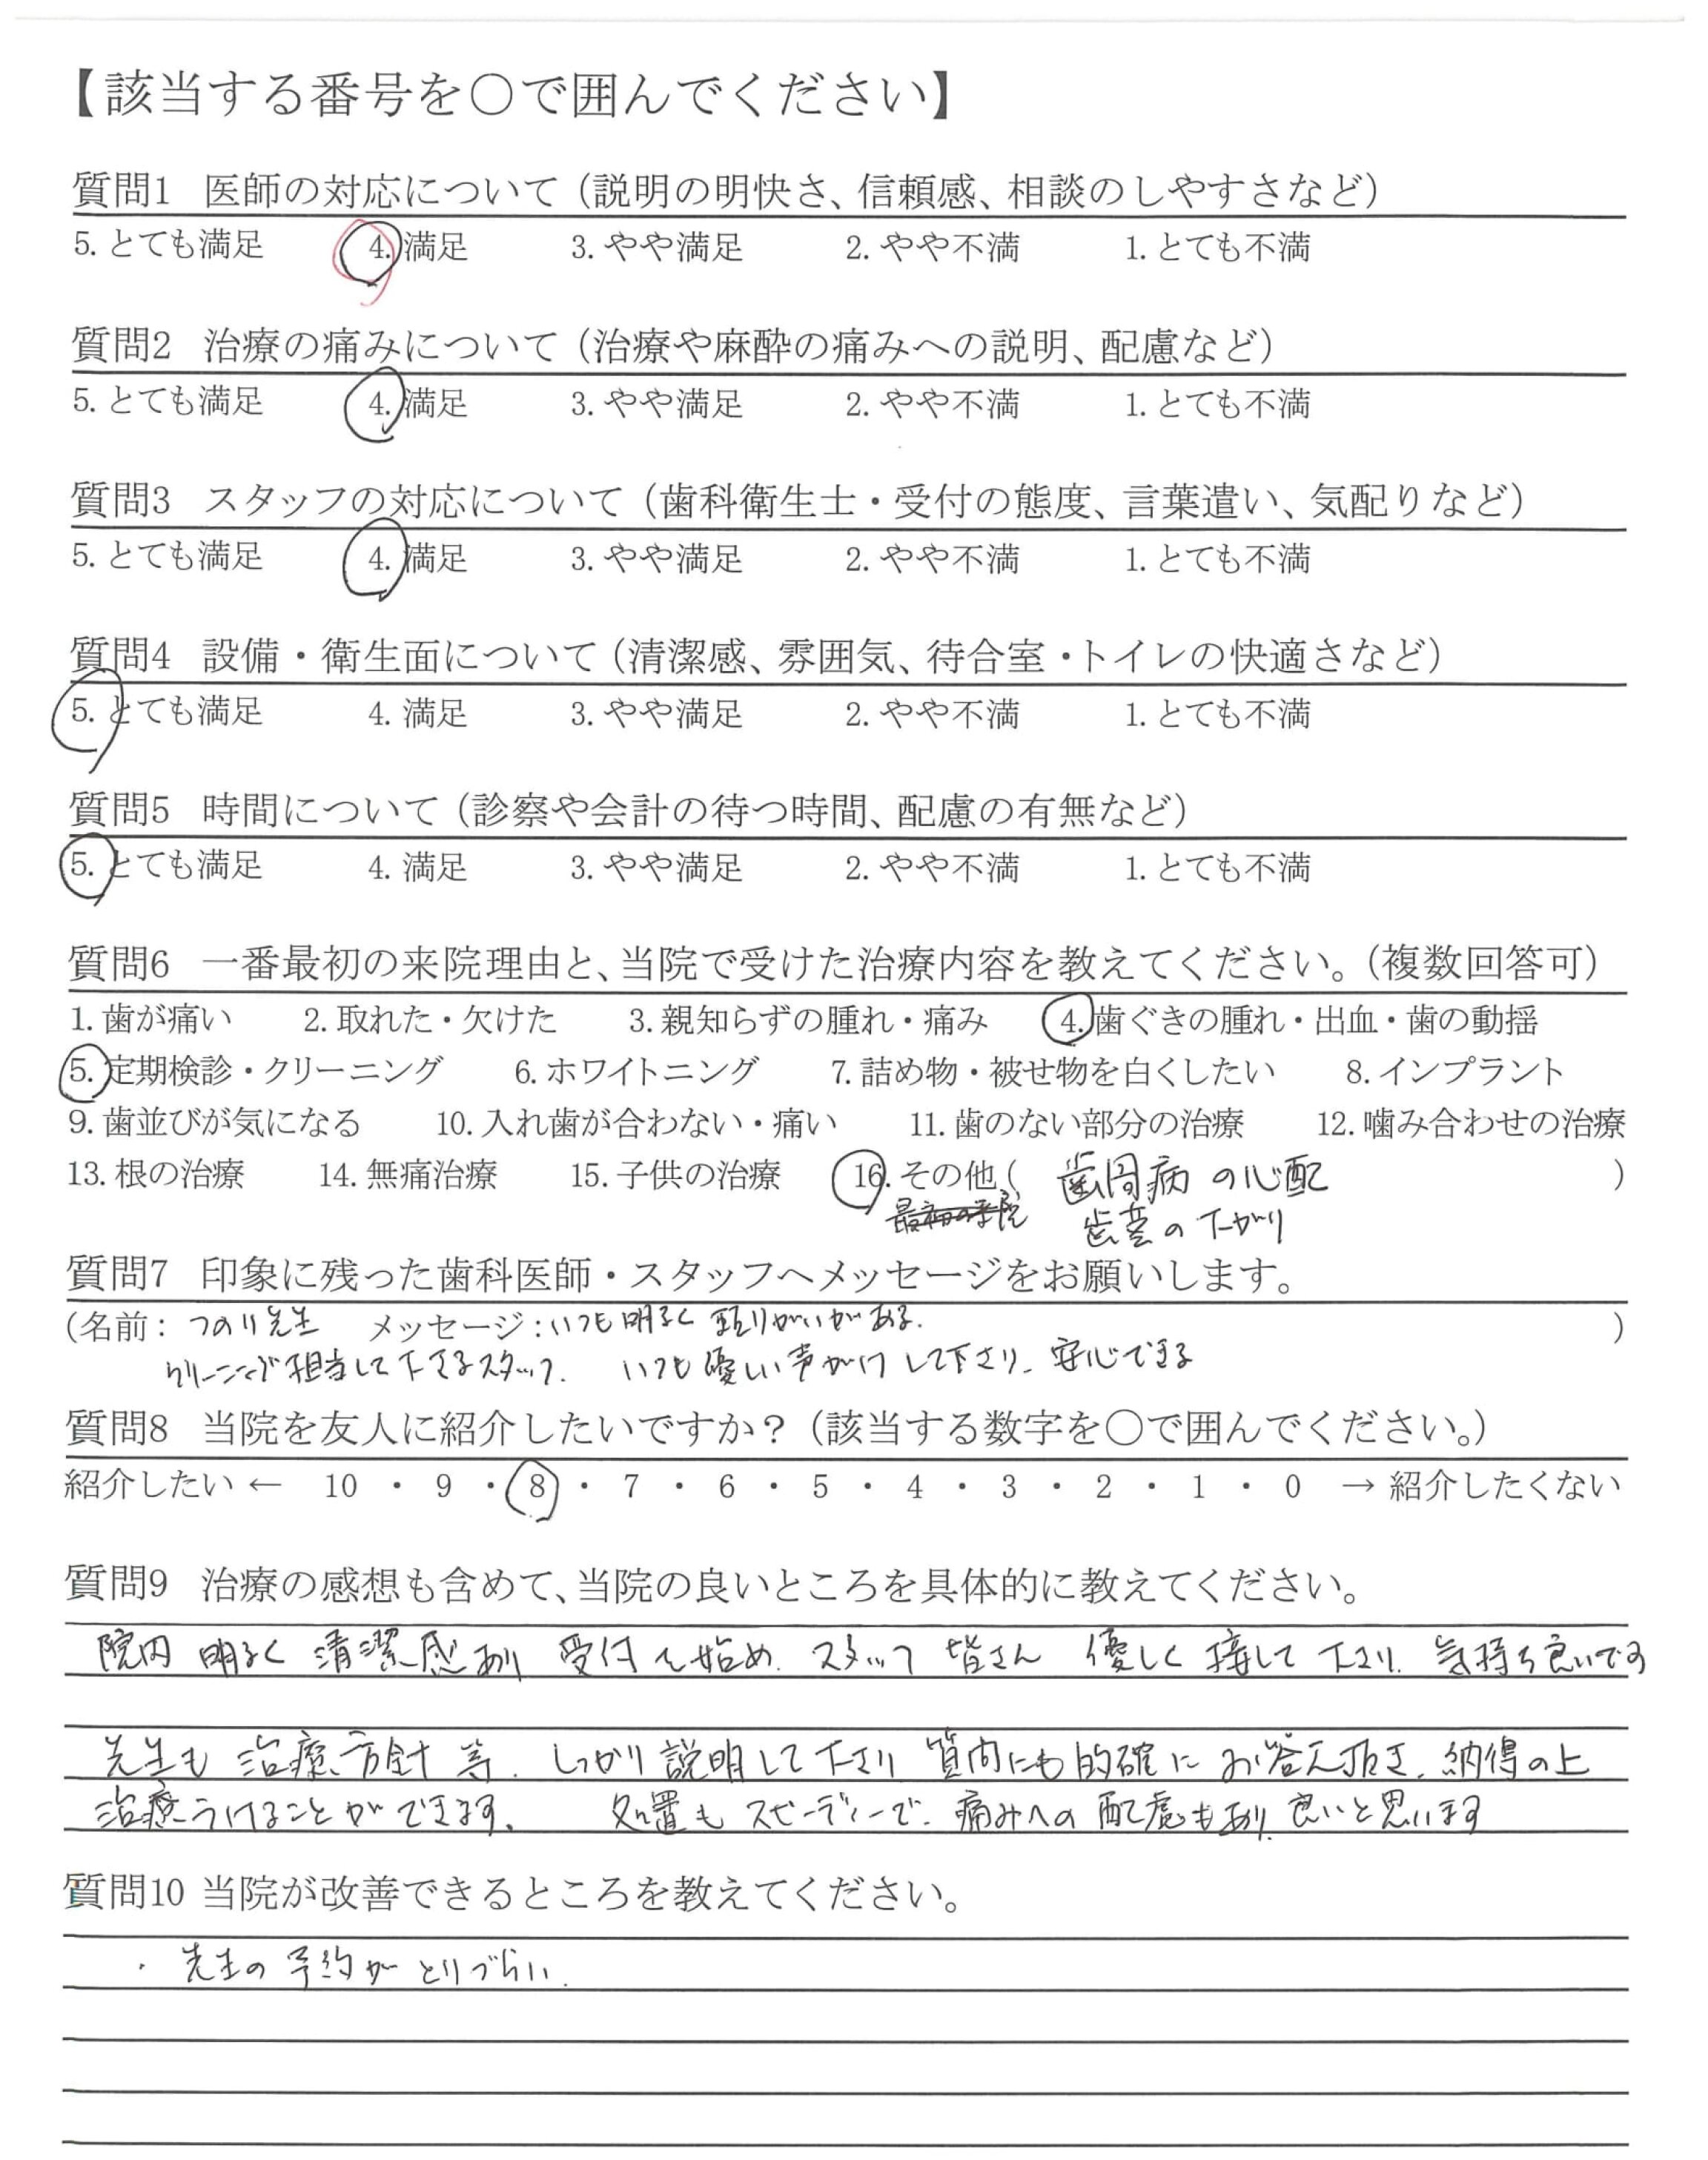 【該当する番号を○で囲んでください】
質問1 医師の対応について（説明の明快さ、信頼感、相談のしやすさなど）
5. とても満足 4. 満足 3. やや満足 2. やや不満 1. とても不満
質問2 治療の痛みについて（治療や麻酔の痛みへの説明、配慮など）
5. とても満足 4. 満足 3. やや満足 2. やや不満 1. とても不満
質問3 スタッフの対応について（歯科衛生士・受付の態度、言葉遣い、気配りなど）
5. とても満足 4. 満足 3. やや満足 2. やや不満 1. とても不満
質問4 設備・衛生面について（清潔感、雰囲気、待合室・トイレの快適さなど）
5. とても満足 4. 満足 3. やや満足 2. やや不満 1. とても不満
質問5 時間について（診察や会計の待つ時間、配慮の有無など）
5. とても満足 4. 満足 3. やや満足 2. やや不満 1. とても不満
質問6 一番最初の来院理由と、当院で受けた治療内容を教えてください。（複数回答可）
1. 歯が痛い 2. 取れた・欠けた 3. 親知らずの腫れ・痛み 4. 歯ぐきの腫れ・出血・歯の動揺
5. 定期検診・クリーニング 6. ホワイトニング 7. 詰め物・被せ物を白くしたい 8. インプラント
9. 歯並びが気になる 10. 入れ歯が合わない・痛い 11. 歯のない部分の治療 12. 噛み合わせの治療
13. 根の治療 14. 無痛治療 15. 子供の治療 16. その他（ 歯周病の心配 ）
歯茎の下がり
質問7 印象に残った歯科医師・スタッフへメッセージをお願いします。
（名前： つのり先生 メッセージ：いつも明るく 頼りがいがある. ）
クリーニングで担当して下さるスタッフ. いつも優しい声がけして下さり、安心できる
質問8 当院を友人に紹介したいですか？（該当する数字を○で囲んでください。）
紹介したい ← 10 ・ 9 ・ 8 ・ 7 ・ 6 ・ 5 ・ 4 ・ 3 ・ 2 ・ 1 ・ 0 → 紹介したくない
質問9 治療の感想も含めて、当院の良いところを具体的に教えてください。
院内 明るく 清潔感あり 受付を始め、スタッフ 皆さん 優しく 接して下さり、気持ち良いです
先生も 治療方針 等、しっかり説明して下さり 質問にも的確に お答え頂き、納得の上
治療うけることができます。 処置も スピーディーで、痛みへの配慮もあり、良いと思います
質問10 当院が改善できるところを教えてください。
・ 先生の予約が とりづらい.